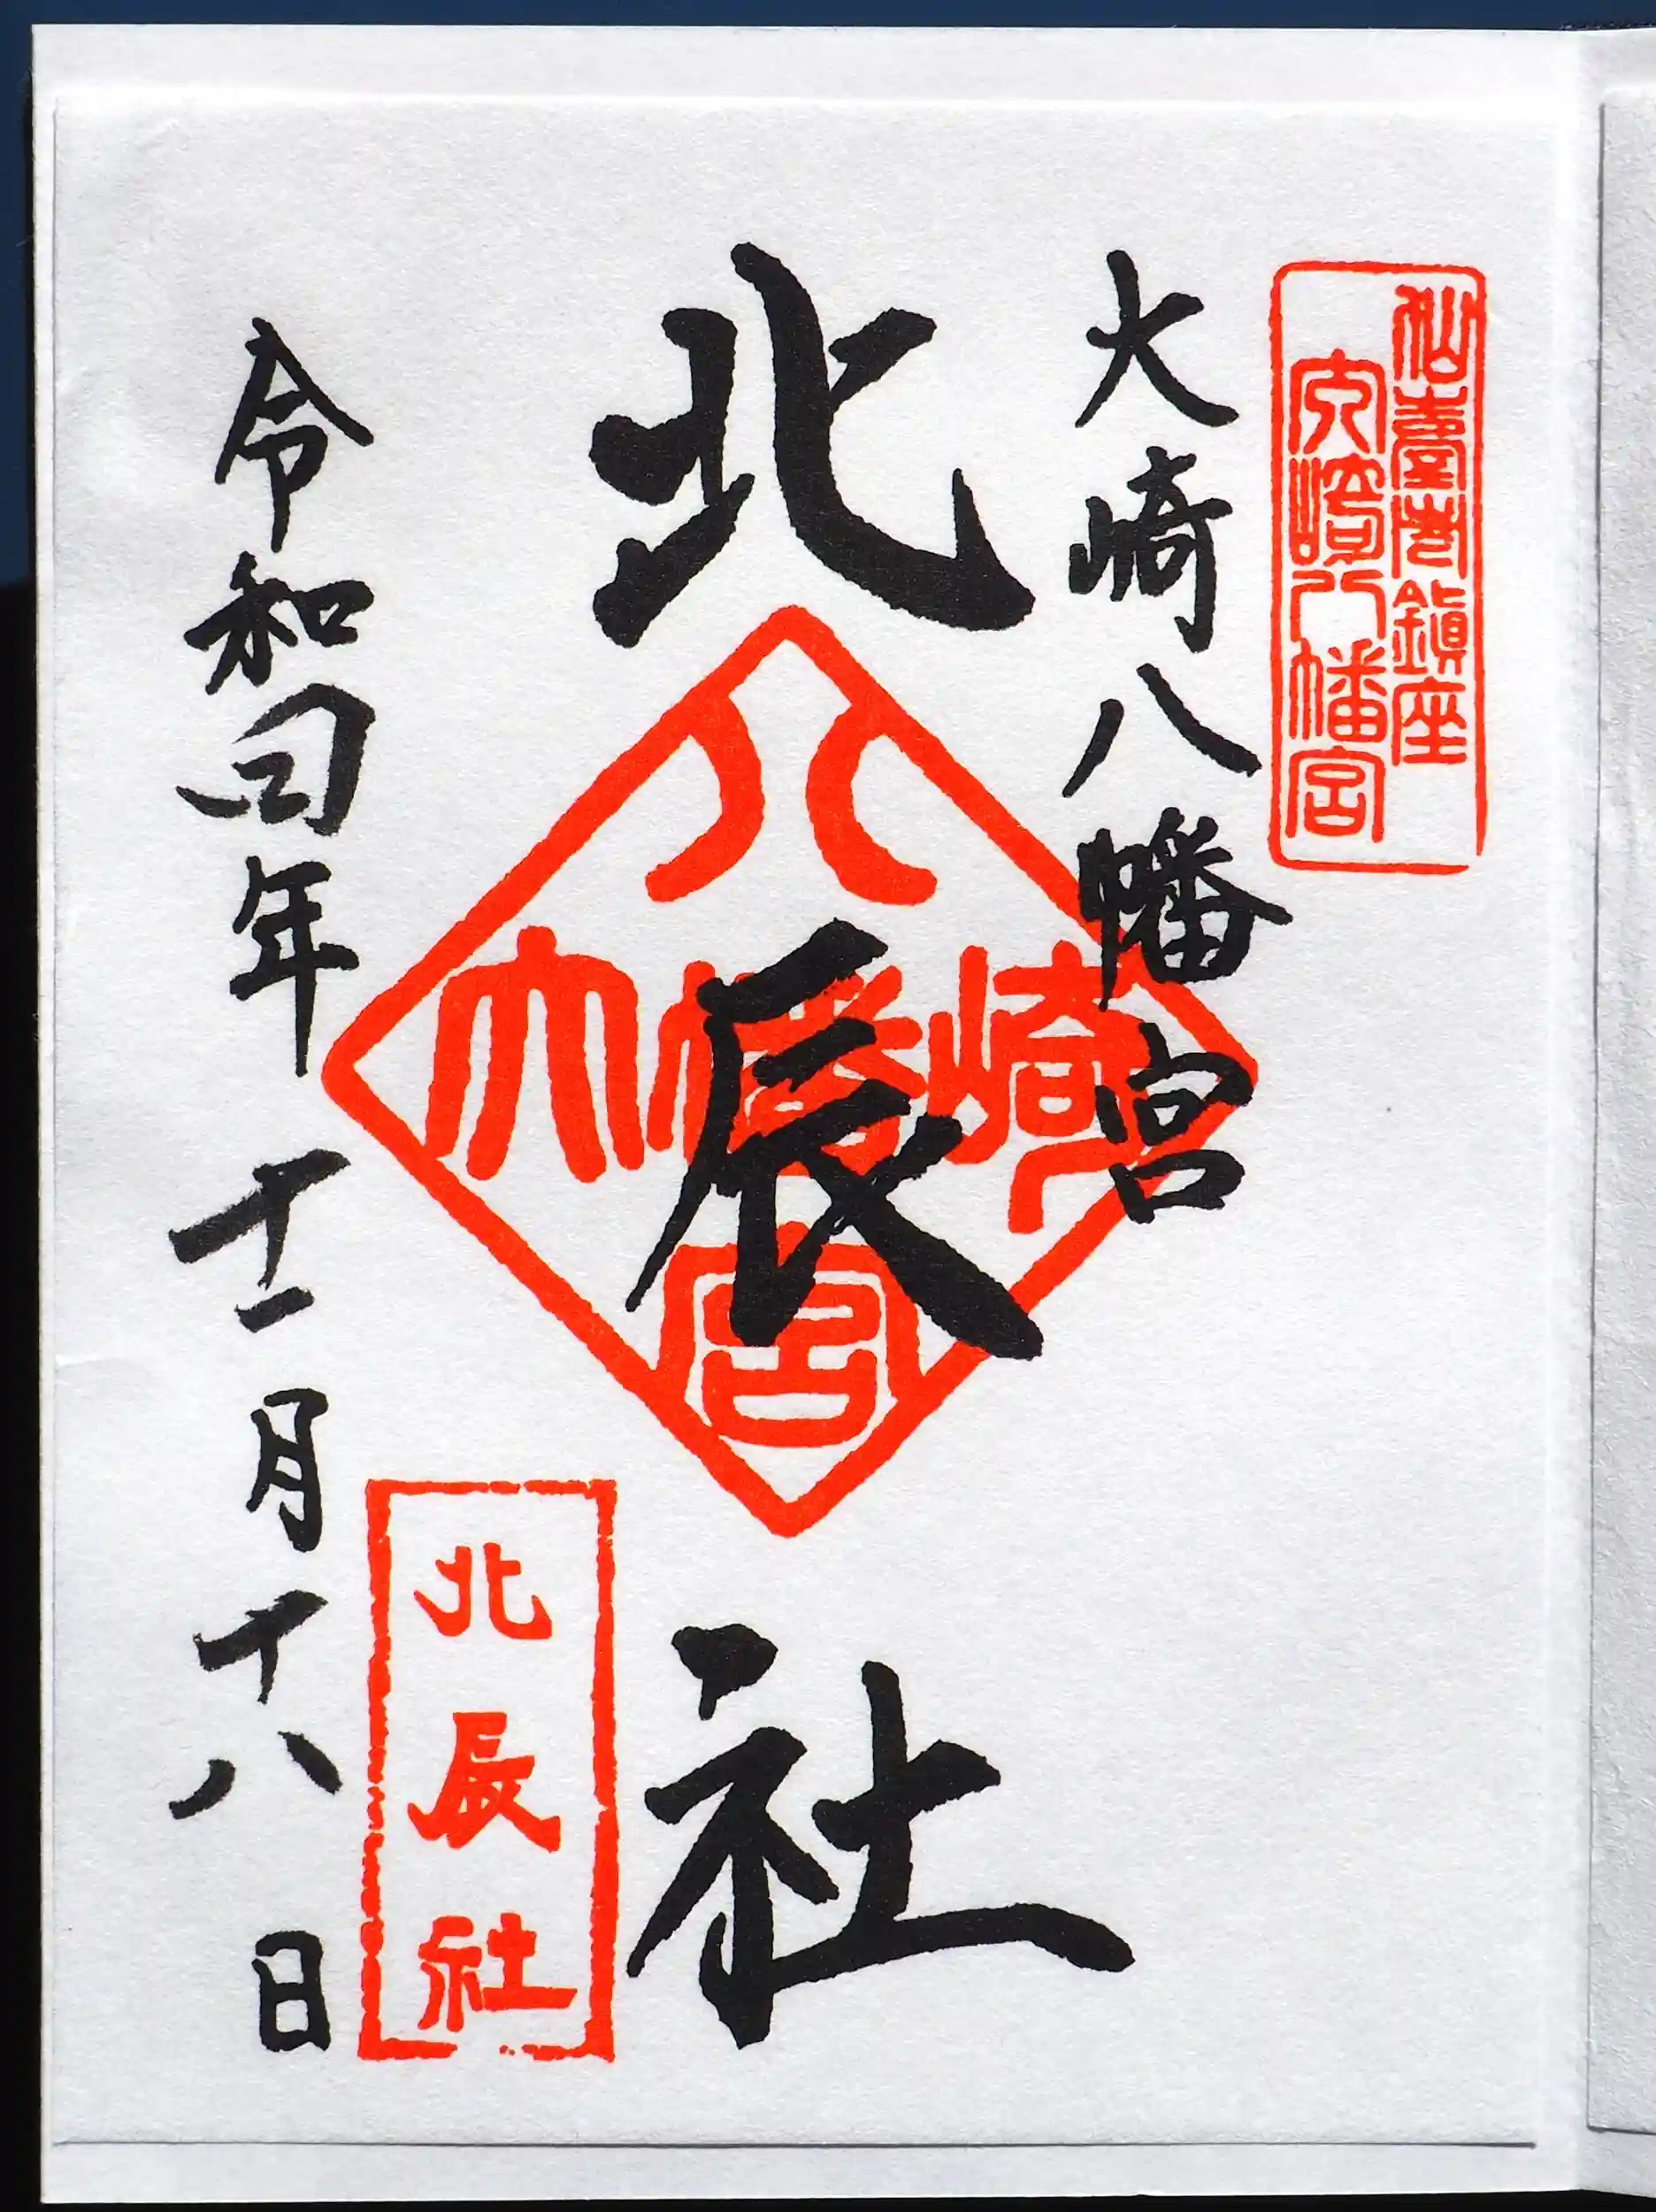 仙臺鎮座
大崎八幡宮
大崎八幡宮
北辰社
大崎八幡宮
北辰社
令和四年十一月十八日